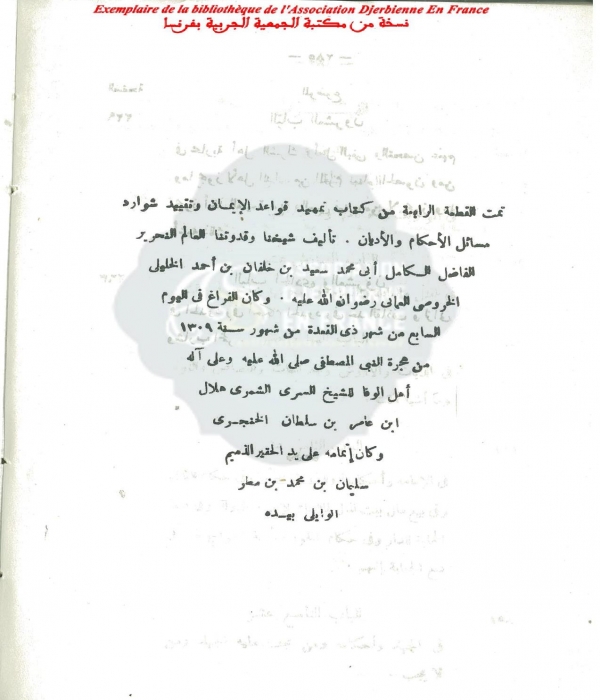 Exemplaire de la bibliothèque de l'Association Djerbienne En France
نسخة من مكتبة الجمعية الجربية بفرنسا
تمت القطعة الرابعة من كتاب تمهيد قواعد الإيمان وتقييد شوارد
مسائل الأحكام والأديان . تأليف شيخنا وقدوتنا العالم النحرير
الفاضل الكامل أبى محمد سعيد بن خلفان بن أحمد الخليلى
الخروصى العمانى رضوان الله عليه . وكان الفراغ فى اليوم
السابع من شهر ذى القعدة من شهور سنة ١٣٠٩
من هجرة النبى المصطفى صلى الله عليه وعلى آله
أهل الوفا للشيخ السرى الشمرى هلال
ابن عامر بن سلطان الخنجرى
وكان إتمامه على يد الحقير الذميم
سليمان بن محمد بن مطر
الوايلى بيده